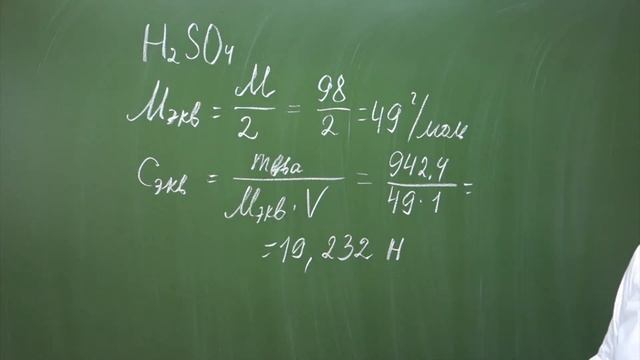 H₂SO₄
Mэкв = M/2 = 98/2 = 49 г/моль
Cэкв = mв-ва/Mэкв·V = 942,4/49·1 =
=19,232 н